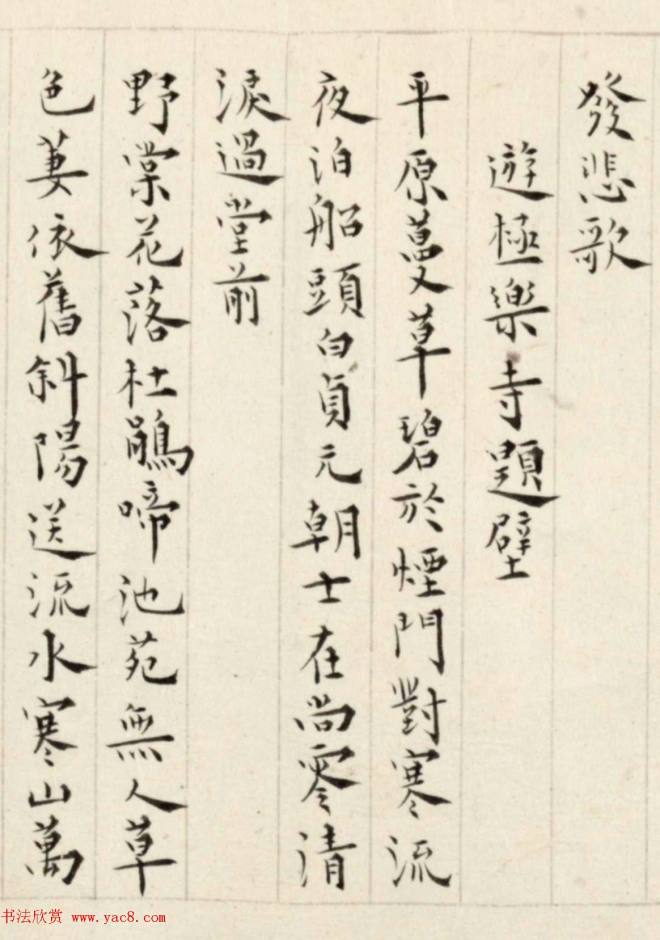 發悲歌
遊極樂寺題壁
平原蔓草碧於煙門對寒流
夜泊船頭白貞元朝士在尚零清
淚過堂前
野棠花落杜鵑啼池苑無人草
色萋依舊斜陽送流水寒山萬
书法欣赏 www.yac8.com